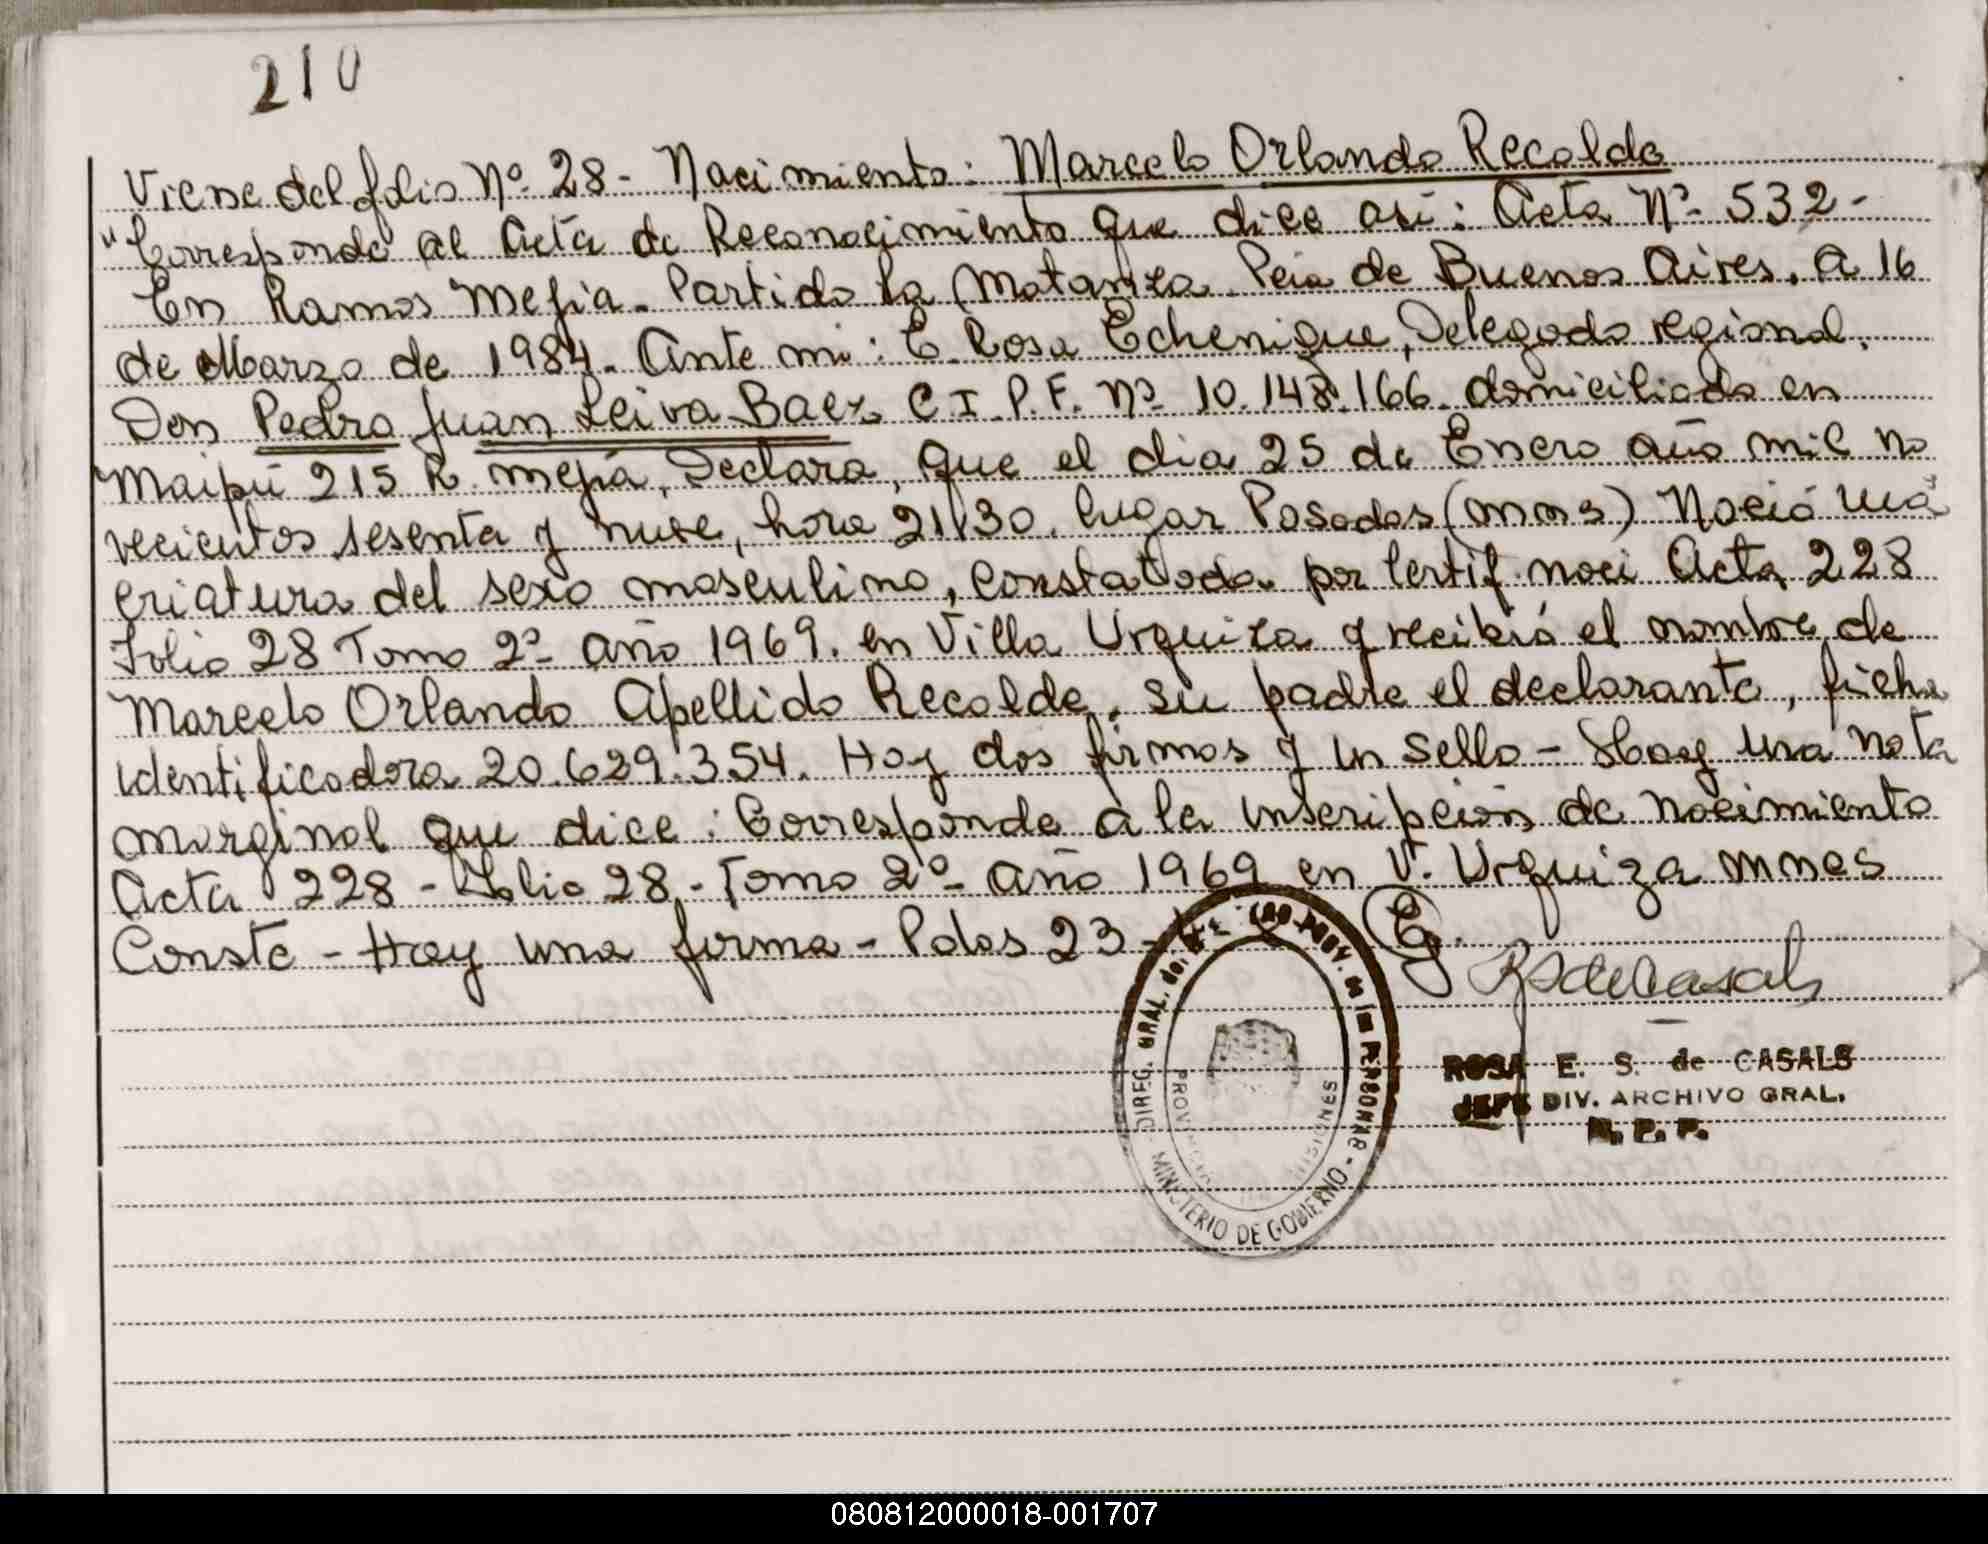 210
Viene del folio Nº 28 - Nacimiento: Marcelo Orlando Recalde
"Corresponde al Acta de Reconocimiento que dice asi: Acta Nº 532-
En Ramos Mejia. Partido La Matanza. Pcia de Buenos Aires, a 16
de Marzo de 1984. Ante mi: E. Rosa Echenique, Delegado regional.
Don Pedro Juan Leiva Baez C I. P. F. Nº 10.148.166. domiciliado en
Maipú 215 R. Mejia, Declara, que el dia 25 de Enero año mil no
vecientos sesenta y nueve, hora 21,30. lugar Posadas (mns) Nació una
criatura del sexo masculino, constatada por Certif. naci Acta 228
Folio 28 Tomo 2º año 1969. en Villa Urquiza y recibió el nombre de
Marcelo Orlando Apellido Recalde, su padre el declarante, ficha
identificadora 20.629.354. Hay dos firmas y un sello - Hay una nota
marginal que dice: Corresponde a la inscripción de nacimiento
Acta 228 - Folio 28 - Tomo 2º año 1969 en V. Urquiza mnes
Conste - Hay una firma - Pdas 23-
DIREG. GRAL. del PERSONAS - MINISTERIO DE GOBIERNO -
PROVINCIA MISIONES
ROSA E. S. de CASALS
JEFE DIV. ARCHIVO GRAL.
R. P. P.
080812000018-001707